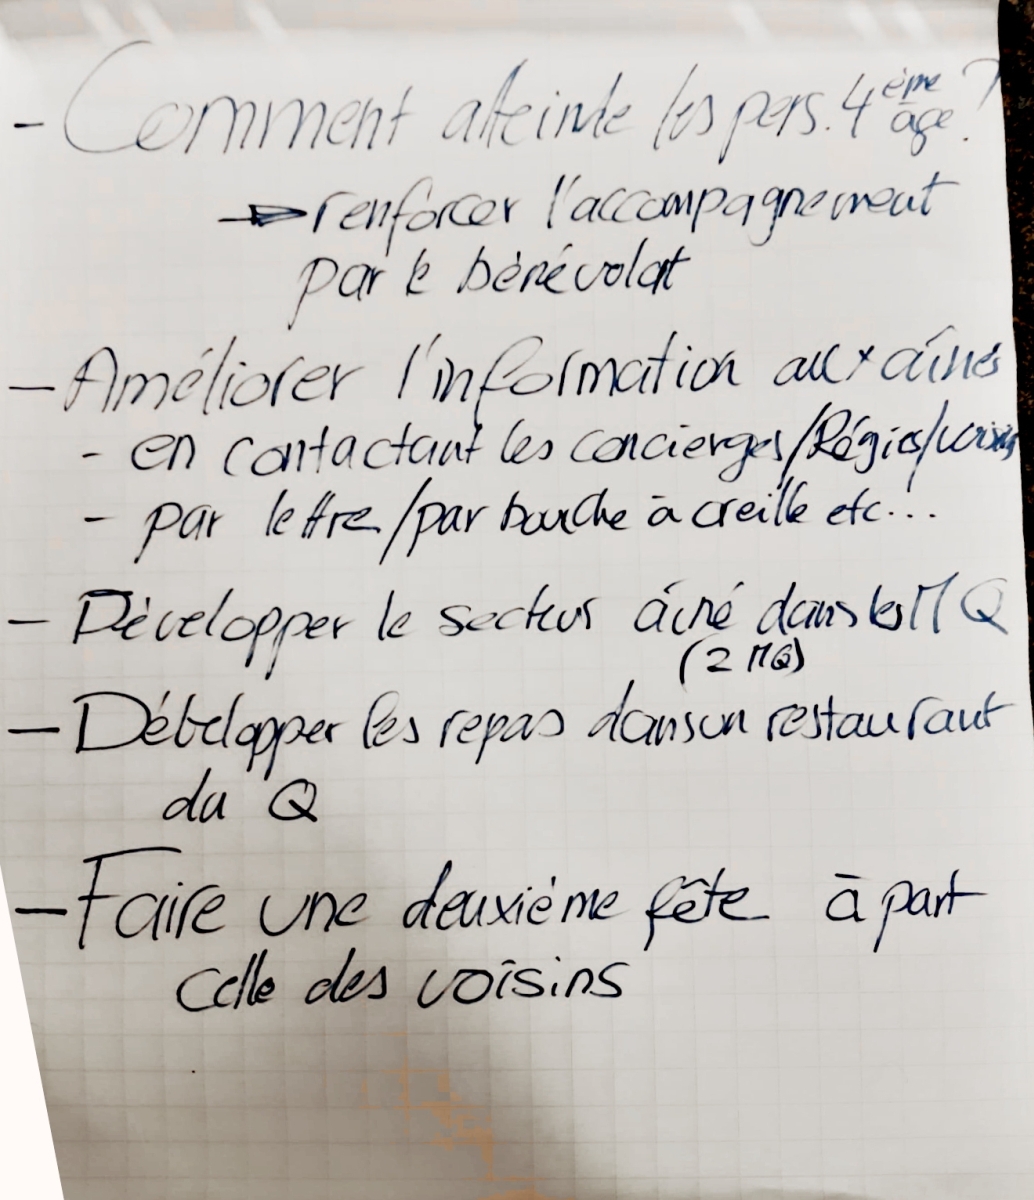 - Comment atteindre les pers. 4ème âge ?
→ renforcer l'accompagnement
par le bénévolat
- Améliorer l'information aux aînés
- en contactant les concierges/Régies/voisins
- par lettre/par bouche à oreille etc...
- Développer le secteur aîné dans les MQ
(2 MQ)
- Développer les repas dans un restaurant
du Q
- Faire une deuxième fête à part
celle des voisins